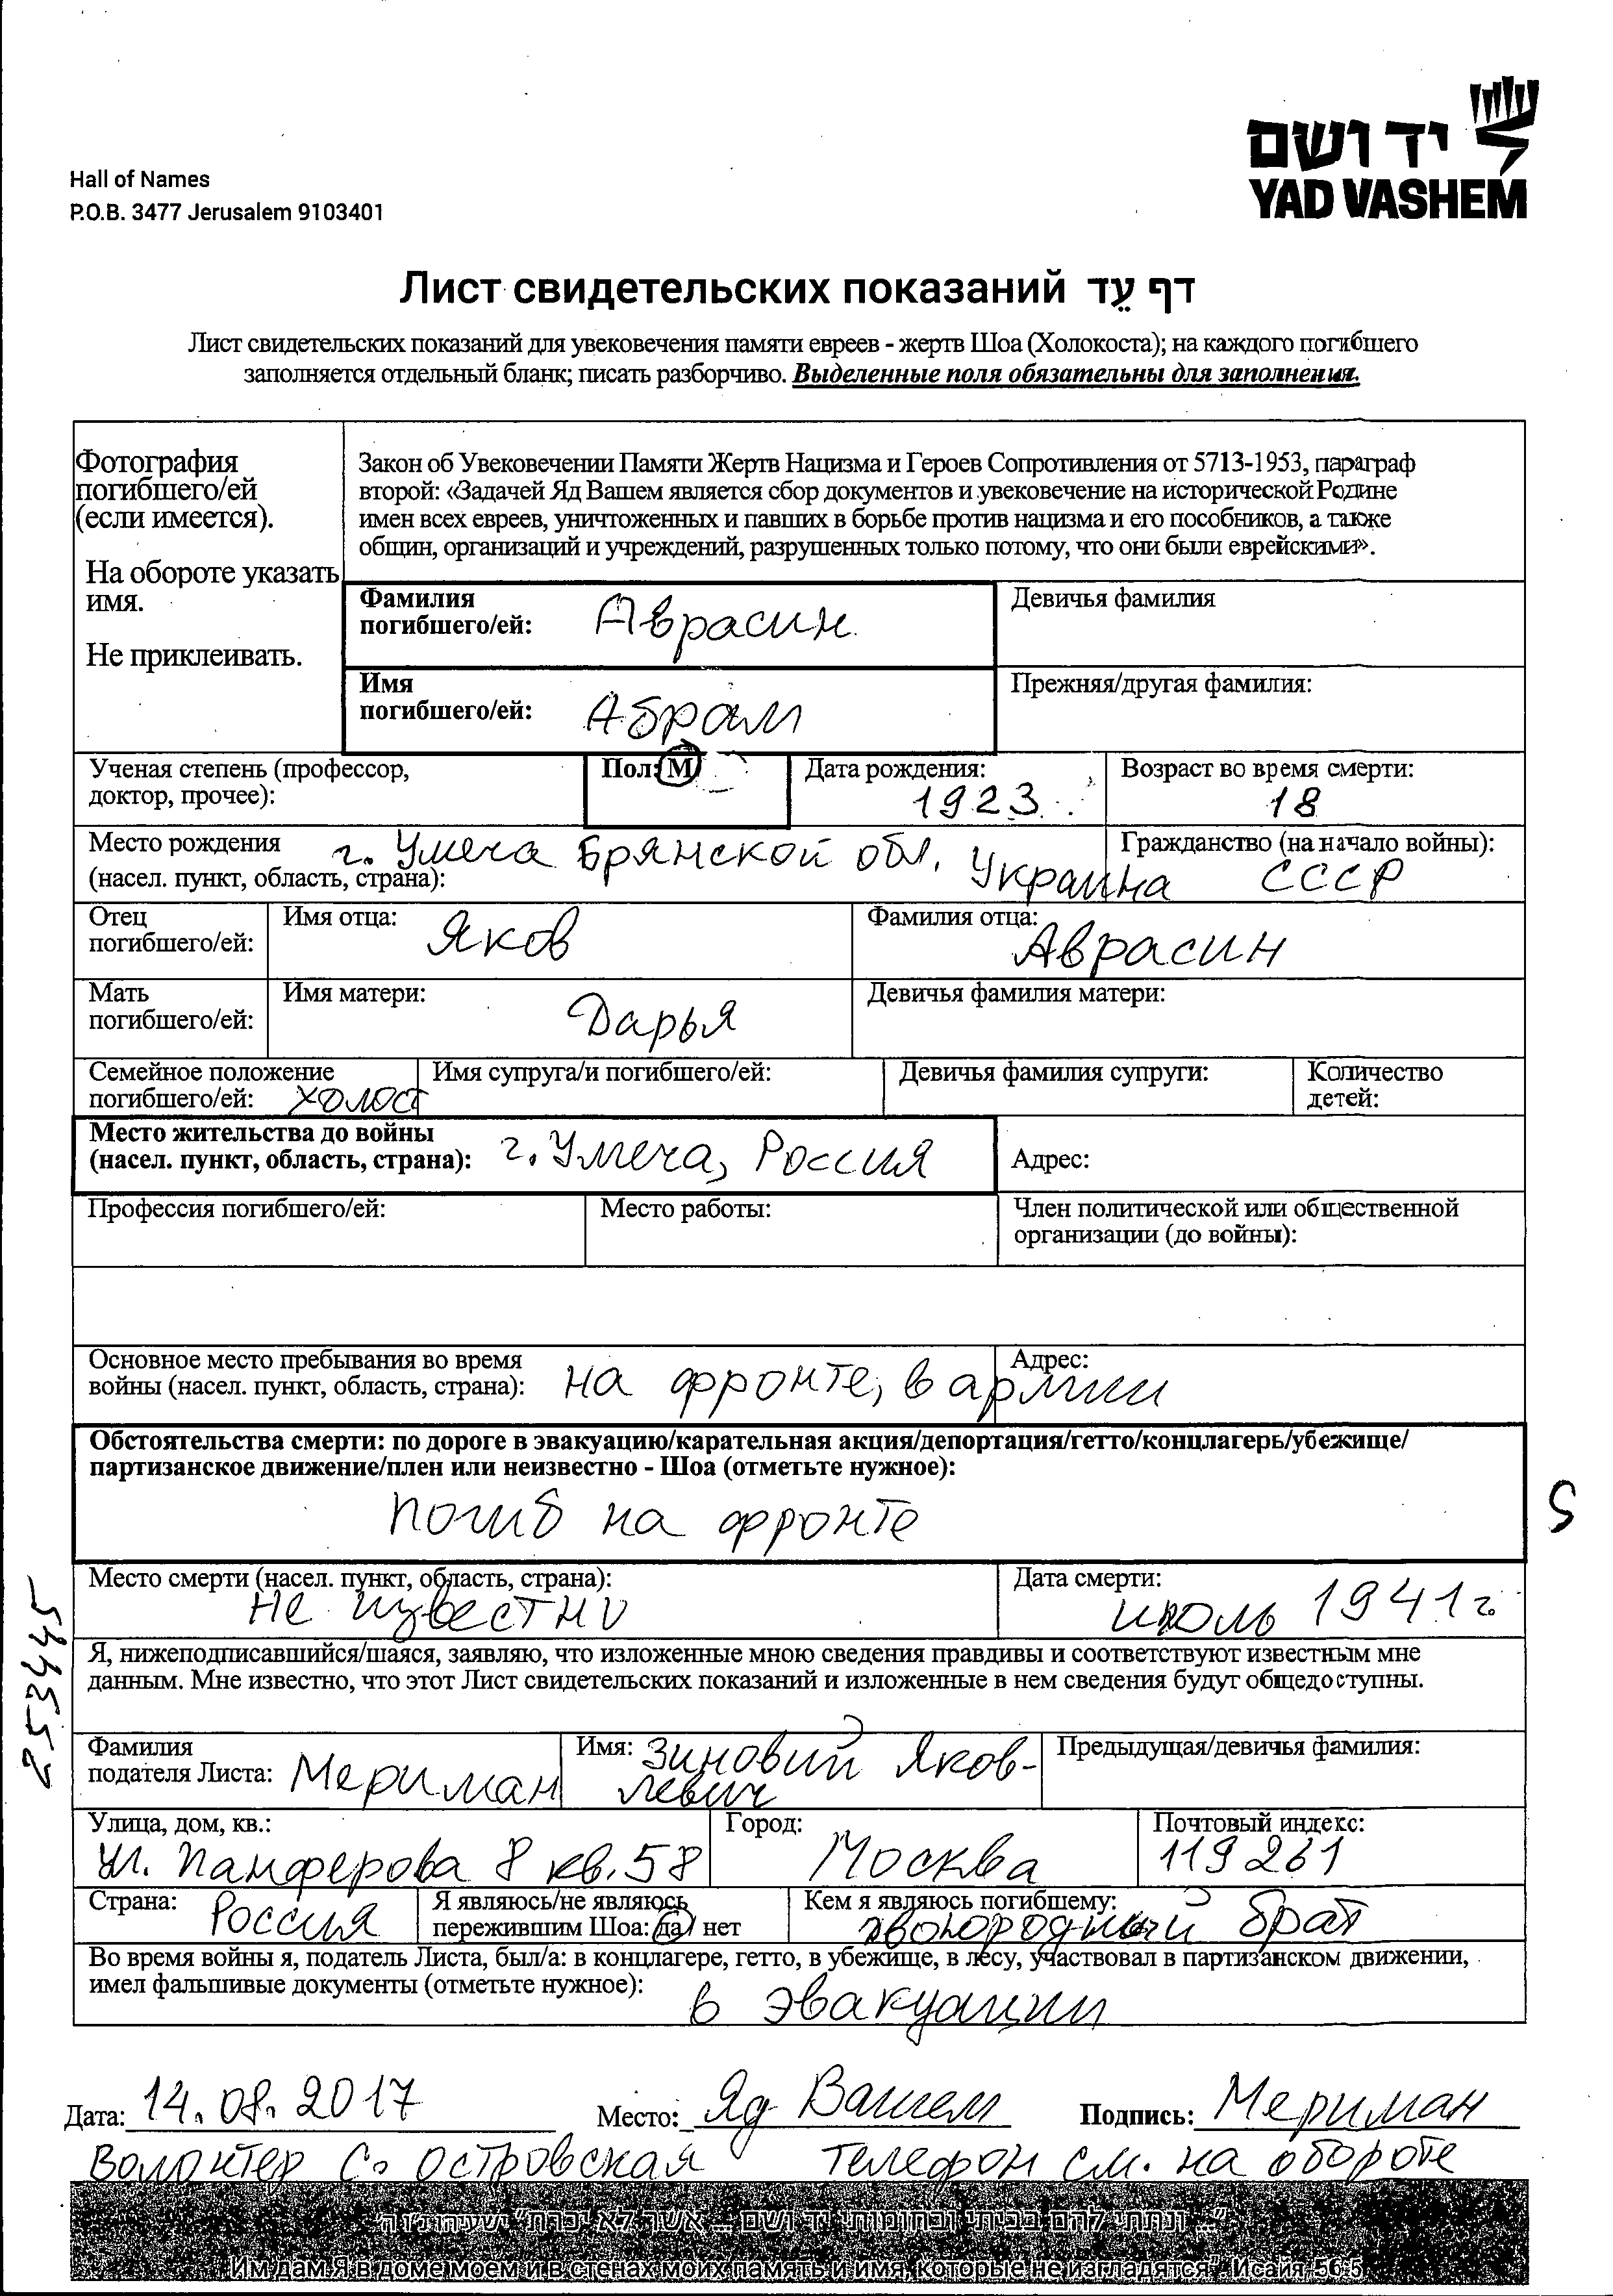 יד ושם
YAD VASHEM
Hall of Names
P.O.B. 3477 Jerusalem 9103401
Лист свидетельских показаний דף עֵד
Лист свидетельских показаний для увековечения памяти евреев - жертв Шоа (Холокоста); на каждого погибшего
заполняется отдельный бланк; писать разборчиво. Выделенные поля обязательны для заполнения.
Фотография
погибшего/ей
(если имеется).
На обороте указать
имя.
Не приклеивать.
Закон об Увековечении Памяти Жертв Нацизма и Героев Сопротивления от 5713-1953, параграф
второй: «Задачей Яд Вашем является сбор документов и увековечение на исторической Родине
имен всех евреев, уничтоженных и павших в борьбе против нацизма и его пособников, а также
общин, организаций и учреждений, разрушенных только потому, что они были еврейскими».
Фамилия
погибшего/ей: Аврасин
Девичья фамилия
Имя
погибшего/ей: Абрам
Прежняя/другая фамилия:
Ученая степень (профессор,
доктор, прочее):
Пол: М
Дата рождения:
1923
Возраст во время смерти:
18
Место рождения
(насел. пункт, область, страна):
г. Умеча Брянской обл. Украина
Гражданство (на начало войны):
СССР
Отец
погибшего/ей:
Имя отца: Яков
Фамилия отца:
Аврасин
Мать
погибшего/ей:
Имя матери:
Дарья
Девичья фамилия матери:
Семейное положение
погибшего/ей: холост
Имя супруга/и погибшего/ей:
Девичья фамилия супруги:
Количество
детей:
Место жительства до войны
(насел. пункт, область, страна): г. Умеча, Россия
Адрес:
Профессия погибшего/ей:
Место работы:
Член политической или общественной
организации (до войны):
Основное место пребывания во время
войны (насел. пункт, область, страна): на фронте, в армии
Адрес:
Обстоятельства смерти: по дороге в эвакуацию/карательная акция/депортация/гетто/концлагерь/убежище/
партизанское движение/плен или неизвестно - Шоа (отметьте нужное):
погиб на фронте
S
Место смерти (насел. пункт, область, страна):
не известно
Дата смерти:
июль 1941 г.
253445
Я, нижеподписавшийся/шаяся, заявляю, что изложенные мною сведения правдивы и соответствуют известным мне
данным. Мне известно, что этот Лист свидетельских показаний и изложенные в нем сведения будут общедоступны.
Фамилия
подателя Листа: Мериман
Имя: Зиновий Яков-
левич
Предыдущая/девичья фамилия:
Улица, дом, кв.:
ул. Панферова 8 кв. 58
Город:
Москва
Почтовый индекс:
119261
Страна: Россия
Я являюсь/не являюсь
пережившим Шоа: да / нет
Кем я являюсь погибшему:
двоюродный брат
Во время войны я, податель Листа, был/а: в концлагере, гетто, в убежище, в лесу, участвовал в партизанском движении,
имел фальшивые документы (отметьте нужное): в эвакуации
Дата: 14.08.2017 Место: Яд Вашем Подпись: Мериман
Волонтер С. Островская телефон см. на обороте
"... ונתתי להם בביתי ובחומותי יד ושם ... אשר לא יכרת" ישעיהו נ"ו ה'
"Им дам Я в доме моем и в стенах моих память и имя, которые не изгладятся". Исайя 56:5